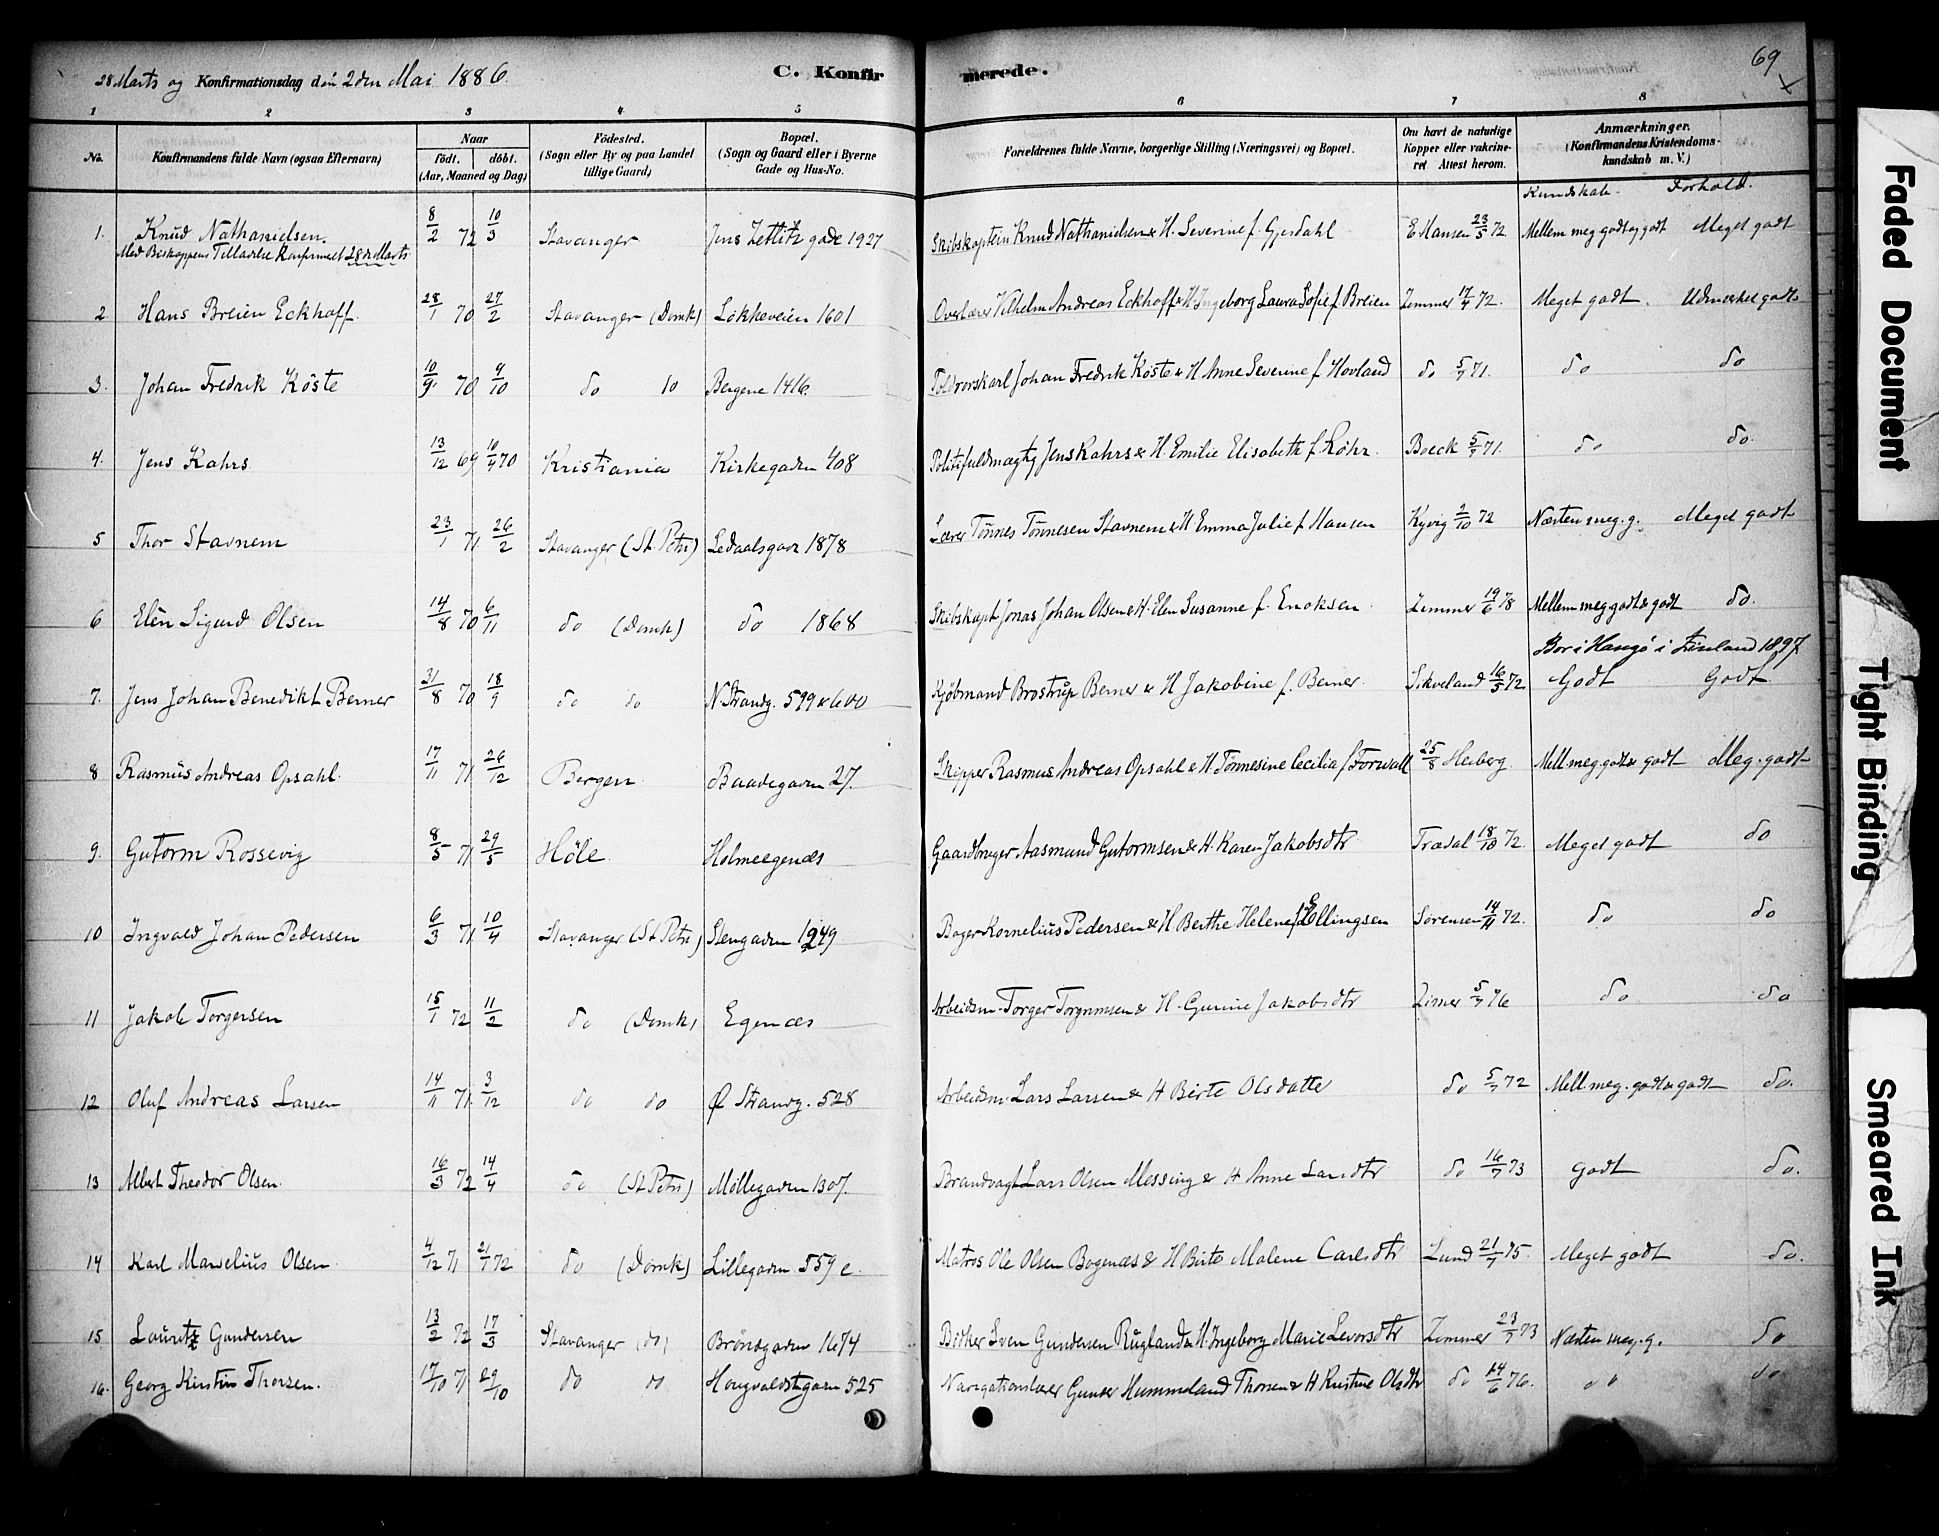 28 Marts og Konfirmationsdag den 2den Mai 1886. C. Konfirmerede. 69
1 2 3 4 5 6 7 8
No. Konfirmandens fulde Navn (ogsaa Efternavn) Naar födt. döbt. (Aar, Maaned og Dag) Födested. (Sogn eller By og paa Landet tillige Gaard) Bopæl. (Sogn og Gaard eller i Byerne Gade og Hus-No. Forældrenes fulde Navne, borgerlige Stilling (Næringsvei) og Bopæl. Om havt de naturlige Kopper eller vakcineret Attest herom. Anmærkninger. (Konfirmandens Kristendomskundskab m. V.)
Kundskab. Forhold.
1. Knud Nathanielsen. 8/2 72 10/3 Stavanger Jens Zetlitz gade 1927 Skibskaptein Knud Nathanielsen & H. Severine f. Gjesdahl E Hansen 23/5 72 Mellem meg godt og godt Meget godt
Med Biskoppens Tilladelse Konfirmeret 28de Marts
2 Hans Breien Eckhoff. 28/1 70 27/2 Stavanger (Domk) Løkkeveien 1601 Overlærer Vilhelm Andreas Eckhoff & H. Ingeborg Laura Sofie f. Breien Zemmer 17/4 72. Meget godt. Udmærket godt
3. Johan Fredrik Köste 10/9 70 9/10 do do Bergene 1416. Toldrorskarl Johan Fredrik Köste & H Anne Severine f Hovland do 5/7 71. do do
4. Jens Kahrs 13/12 69 10/4 70 Kristiania Kirkegaden 408 Politifuldmægtig Jens Kahrs & H. Emilie Elisabeth f. Röhr. Boeck 5/7 71. do do.
5 Thor Stavnem 23/1 71. 26/2 Stavanger (St. Petri) Ledaalsgade 1878 Lærer Tönnes Tönnesen Stavnem & H Emma Julie f. Hansen Kyvig 2/10 72 Næsten meg. g. Meget godt
6 Elen Sigurd Olsen 14/8 70 6/11 do (Domk) do 1868 Skibskapt Jonas Johan Olsen & H. Elen Susanne f. Enoksen Zemmer 19/6 78 Mellem meg godt & godt do.
Bor i Hangö i Finland 1897
7. Jens Johan Benedikt Berner 31/8 70 18/9 do do N Strandg. 599 & 600 Kjöbmand Broströp Berner & H Jakobine f. Berner. Sikveland 16/5 72 Godt Godt
8 Rasmus Andreas Opsahl. 17/11 71. 26/12 Bergen Baadegaden 27. Skipper Rasmus Andreas Opsahl & H Tönnesine Cecilia f Forwall 25/8 Heiberg. Mell. meg. godt & godt Meg. godt
9. Gutorm Rossevig 8/5 71. 29/5 Höle. Holmeegenæs Gaardbruger Aasmund Gutormsen & H. Karen Jakobsdtr Trædal 18/10 72. Meget godt do
10 Ingvald Johan Pedersen 6/3 71. 10/4 Stavanger (St Petri) Stengaden 1249 Bager Kornelius Pedersen & H Berthe Helene f. Ellingsen Sørensen 14/11 72. do do
11 Jakob Torgersen 15/1 72 11/2 do (Domk) Egenæs Arbeidsm. Torger Torgrimsen & H. Gurine Jakobsdtr Zimer 5/7 76 do do
12 Oluf Andreas Larsen 14/11 71. 3/12 do do Ø Strandg. 528 Arbeidsm Lars Larsen & H Birte Olsdatter do 5/7 72 Mell. meg. godt & godt do.
13 Albert Theodor Olsen. 16/3 72 14/4 do (St Petri) Möllegaden 1307. Brandvagt Lars Olsen Messing & H Anne Larsdtr do 16/7 73 Godt do.
14 Karl Marselius Olsen 4/12 71 21/1 72 do (Domk) Lillegaden 559 c. Matros Ole Olsen Bogenæs & H Birte Malene Carlsdtr Lund 21/7 75. Meget godt do.
15 Lauritz Gundersen 13/2 72 17/3 Stavanger (do) Bröndgaden 1674 Bödker Sven Gundersen Rugland & H. Ingeborg Marie Levorsdtr Zemmer 23/7 73 Næsten meg. g. do
16. Georg Kirstin Thorsen. 17/10 71 29/10 do do 525 Navigationslærer Gunder Hummeland Thorsen & H Kristine Olsdtr do 14/6 76. " " do
Faded Document
Tight Binding
Smeared Ink